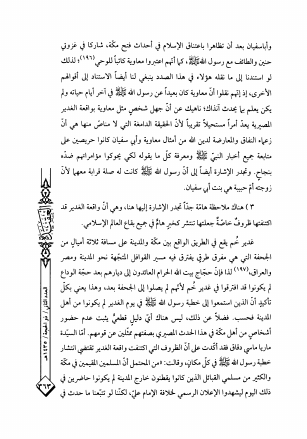 وأباسفيان بعد أن تظاهرا باعتناق الإسلام في أحداث فتح مكّة، شاركا في غزوتي
حنين والطائف مع رسول الله ﷺ، كما أنّهم اعتبروا معاوية كاتباً للوحي(١٩٦)؛ لذلك
لو استندنا إلى ما نقله هؤلاء في هذا الصدد ينبغي لنا أيضاً الاستناد إلى أقوالهم
الأخرى، إذ إنّهم نقلوا أنّ معاوية كان بعيداً عن رسول الله ﷺ في آخر أيام حياته ولم
يكن يعلم بما يحدث آنذاك؛ ناهيك عن أنّ جهل شخص مثل معاوية بواقعة الغدير
المصيرية يعدّ أمراً مستحيلاً تقريباً لأنّ الحقيقة الدامغة التي لا مناصّ منها هي أنّ
زعماء النفاق والمعارضة لدين الله من أمثال معاوية وأبي سفيان كانوا حريصين على
متابعة جميع أخبار النبيّ ﷺ ومعرفة كلّ ما يقوله لكي يحوكوا مؤامراتهم ضدّه
بنجاح. وتجدر الإشارة أيضاً إلى أنّ رسول الله ﷺ كانت له صلة قرابة معهما لأنّ
زوجته أمّ حبيبة هي بنت أبي سفيان.
٣) هناك ملاحظة هامّة جدّاً تجدر الإشارة إليها هنا، وهي أنّ واقعة الغدير قد
اكتنفتها ظروف خاصّة جعلتها تنتشر كخبرٍ هامٍّ في جميع بقاع العالم الإسلامي.
غدير خُم يقع في الطريق الواقع بين مكّة والمدينة على مسافة ثلاثة أميال من
الجحفة التي هي مفرق طرقٍ يفترق فيه مسير القوافل المتّجهة نحو المدينة ومصر
والعراق،(١٩٧) لذا فإنّ حجّاج بيت الله الحرام العائدون إلى ديارهم بعد حجّة الوداع
لم يكونوا قد افترقوا في غدير خُم لأنّهم لم يصلوا إلى الجحفة بعد، وهذا يعني بكلّ
تأكيدٍ أنّ الذين استمعوا إلى خطبة رسول الله ﷺ في يوم الغدير لم يكونوا من أهل
المدينة فحسب. فضلاً عن ذلك، ليس هناك أيّ دليلٍ قطعيٍّ يثبت عدم حضور
أشخاص من أهل مكّة في هذا الحدث المصيري بصفتهم ممثّلين عن قومهم. أمّا السيّدة
ماريا ماسي دقاق فقد أكّدت على أنّ الظروف التي اكتنفت واقعة الغدير تقتضي انتشار
خطبة رسول الله ﷺ في كلّ مكانٍ، وقالت: «من المحتمل أنّ المسلمين المقيمين في مكّة
والكثير من مسلمي القبائل الذين كانوا يقطنون خارج المدينة لم يكونوا حاضرين في
ذلك اليوم ليشهدوا الإعلان الرسمي لخلافة الإمام عليّ، لكنّنا لو تتبّعنا ما حدث في
العدد الثاني / ذو الحجة / ١٤٣٥هـ
٣٦٣